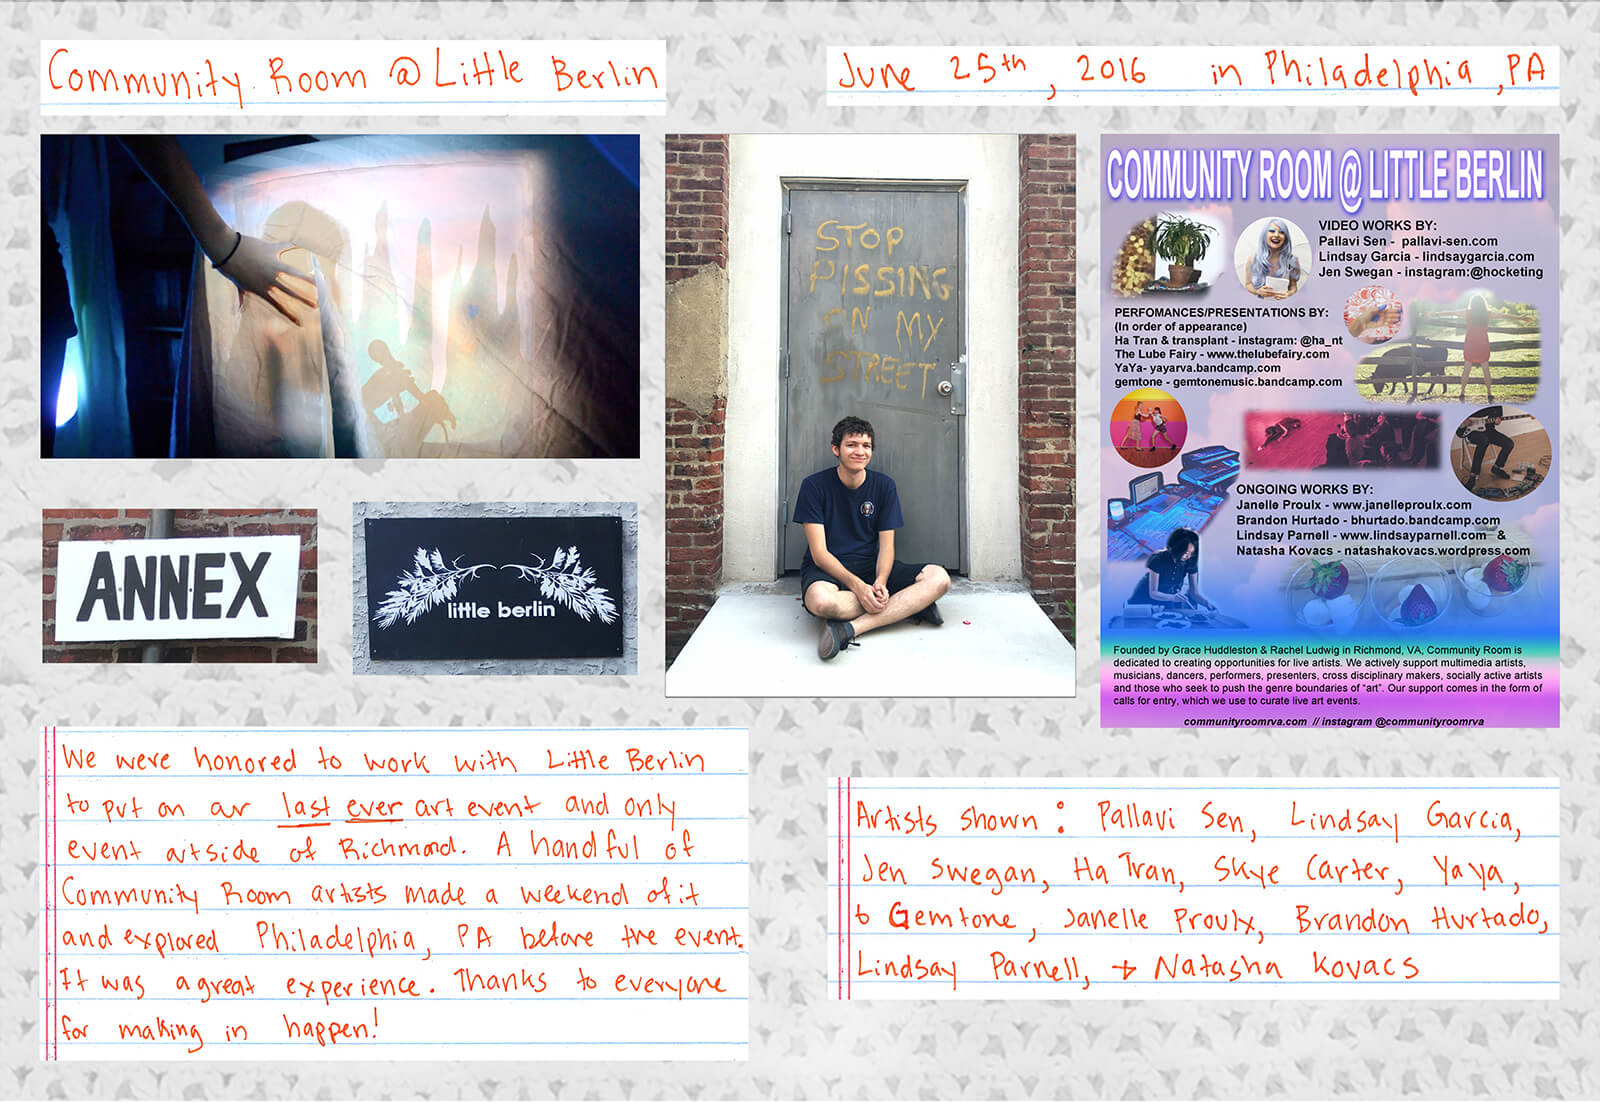 Community Room @ Little Berlin
June 25th, 2016 in Philadelphia, PA
STOP
PISSING
ON MY
STREET
COMMUNITY ROOM @ LITTLE BERLIN
VIDEO WORKS BY:
Pallavi Sen - pallavi-sen.com
Lindsay Garcia - lindsaygarcia.com
Jen Swegan - instagram:@hocketing
PERFOMANCES/PRESENTATIONS BY:
(In order of appearance)
Ha Tran & transplant - instagram: @ha_nt
The Lube Fairy - www.thelubefairy.com
YaYa- yayarva.bandcamp.com
gemtone - gemtonemusic.bandcamp.com
ONGOING WORKS BY:
Janelle Proulx - www.janelleproulx.com
Brandon Hurtado - bhurtado.bandcamp.com
Lindsay Parnell - www.lindsayparnell.com &
Natasha Kovacs - natashakovacs.wordpress.com
Founded by Grace Huddleston & Rachel Ludwig in Richmond, VA, Community Room is
dedicated to creating opportunities for live artists. We actively support multimedia artists,
musicians, dancers, performers, presenters, cross disciplinary makers, socially active artists
and those who seek to push the genre boundaries of "art". Our support comes in the form of
calls for entry, which we use to curate live art events.
communityroomrva.com // instagram @communityroomrva
ANNEX
little berlin
We were honored to work with Little Berlin
to put on our last ever art event and only
event outside of Richmond. A handful of
Community Room artists made a weekend of it
and explored Philadelphia, PA before the event.
It was a great experience. Thanks to everyone
for making in happen!
Artists shown: Pallavi Sen, Lindsay Garcia,
Jen Swegan, Ha Tran, Skye Carter, YaYa,
Gemtone, Janelle Proulx, Brandon Hurtado,
Lindsay Parnell, + Natasha Kovacs